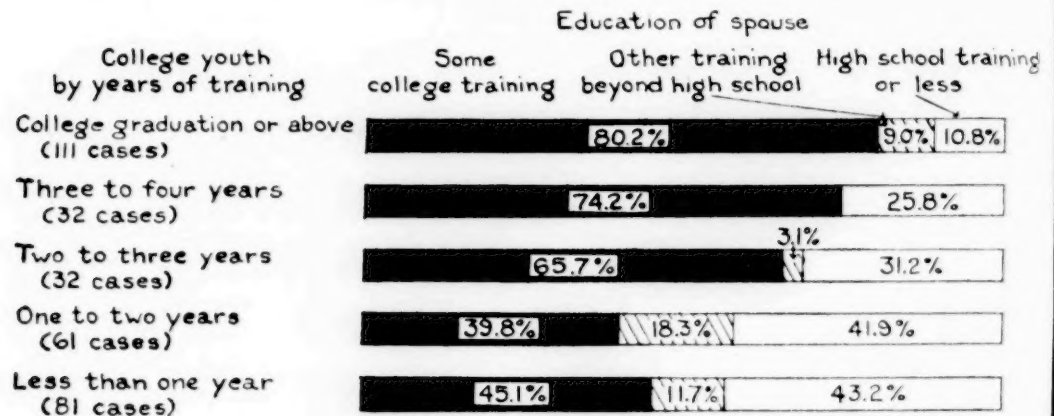 Education of spouse
College youth
by years of training
Some
college training
Other training
beyond high school
High school training
or less
College graduation or above
(111 cases)
80.2%
9.0%
10.8%
Three to four years
(32 cases)
74.2%
25.8%
Two to three years
(32 cases)
65.7%
3.1%
31.2%
One to two years
(61 cases)
39.8%
18.3%
41.9%
Less than one year
(81 cases)
45.1%
11.7%
43.2%